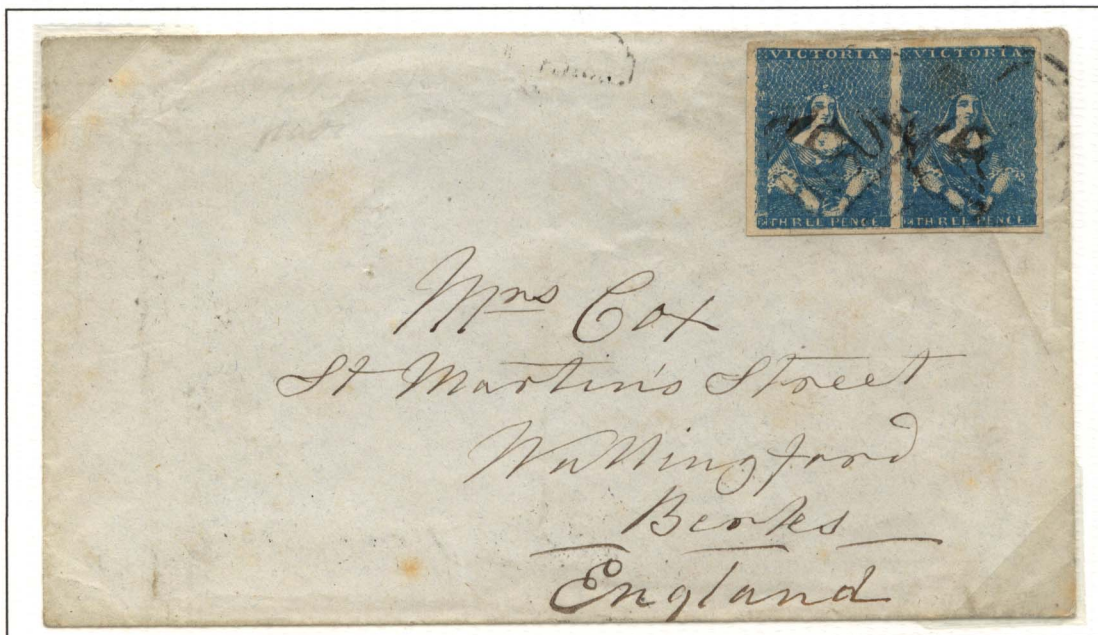 VICTORIA VICTORIA
THREE PENCE THREE PENCE
Mrs Cox
St Martin's Street
Wallingford
Berks
England